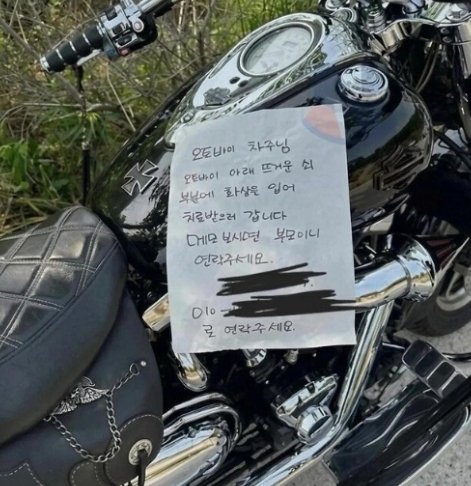 오토바이 차주님
오토바이 아래 뜨거운 쇠
부분에 화상을 입어
치료받으러 갑니다
메모 보시면 부모이니
연락주세요.
010-
로 연락주세요.